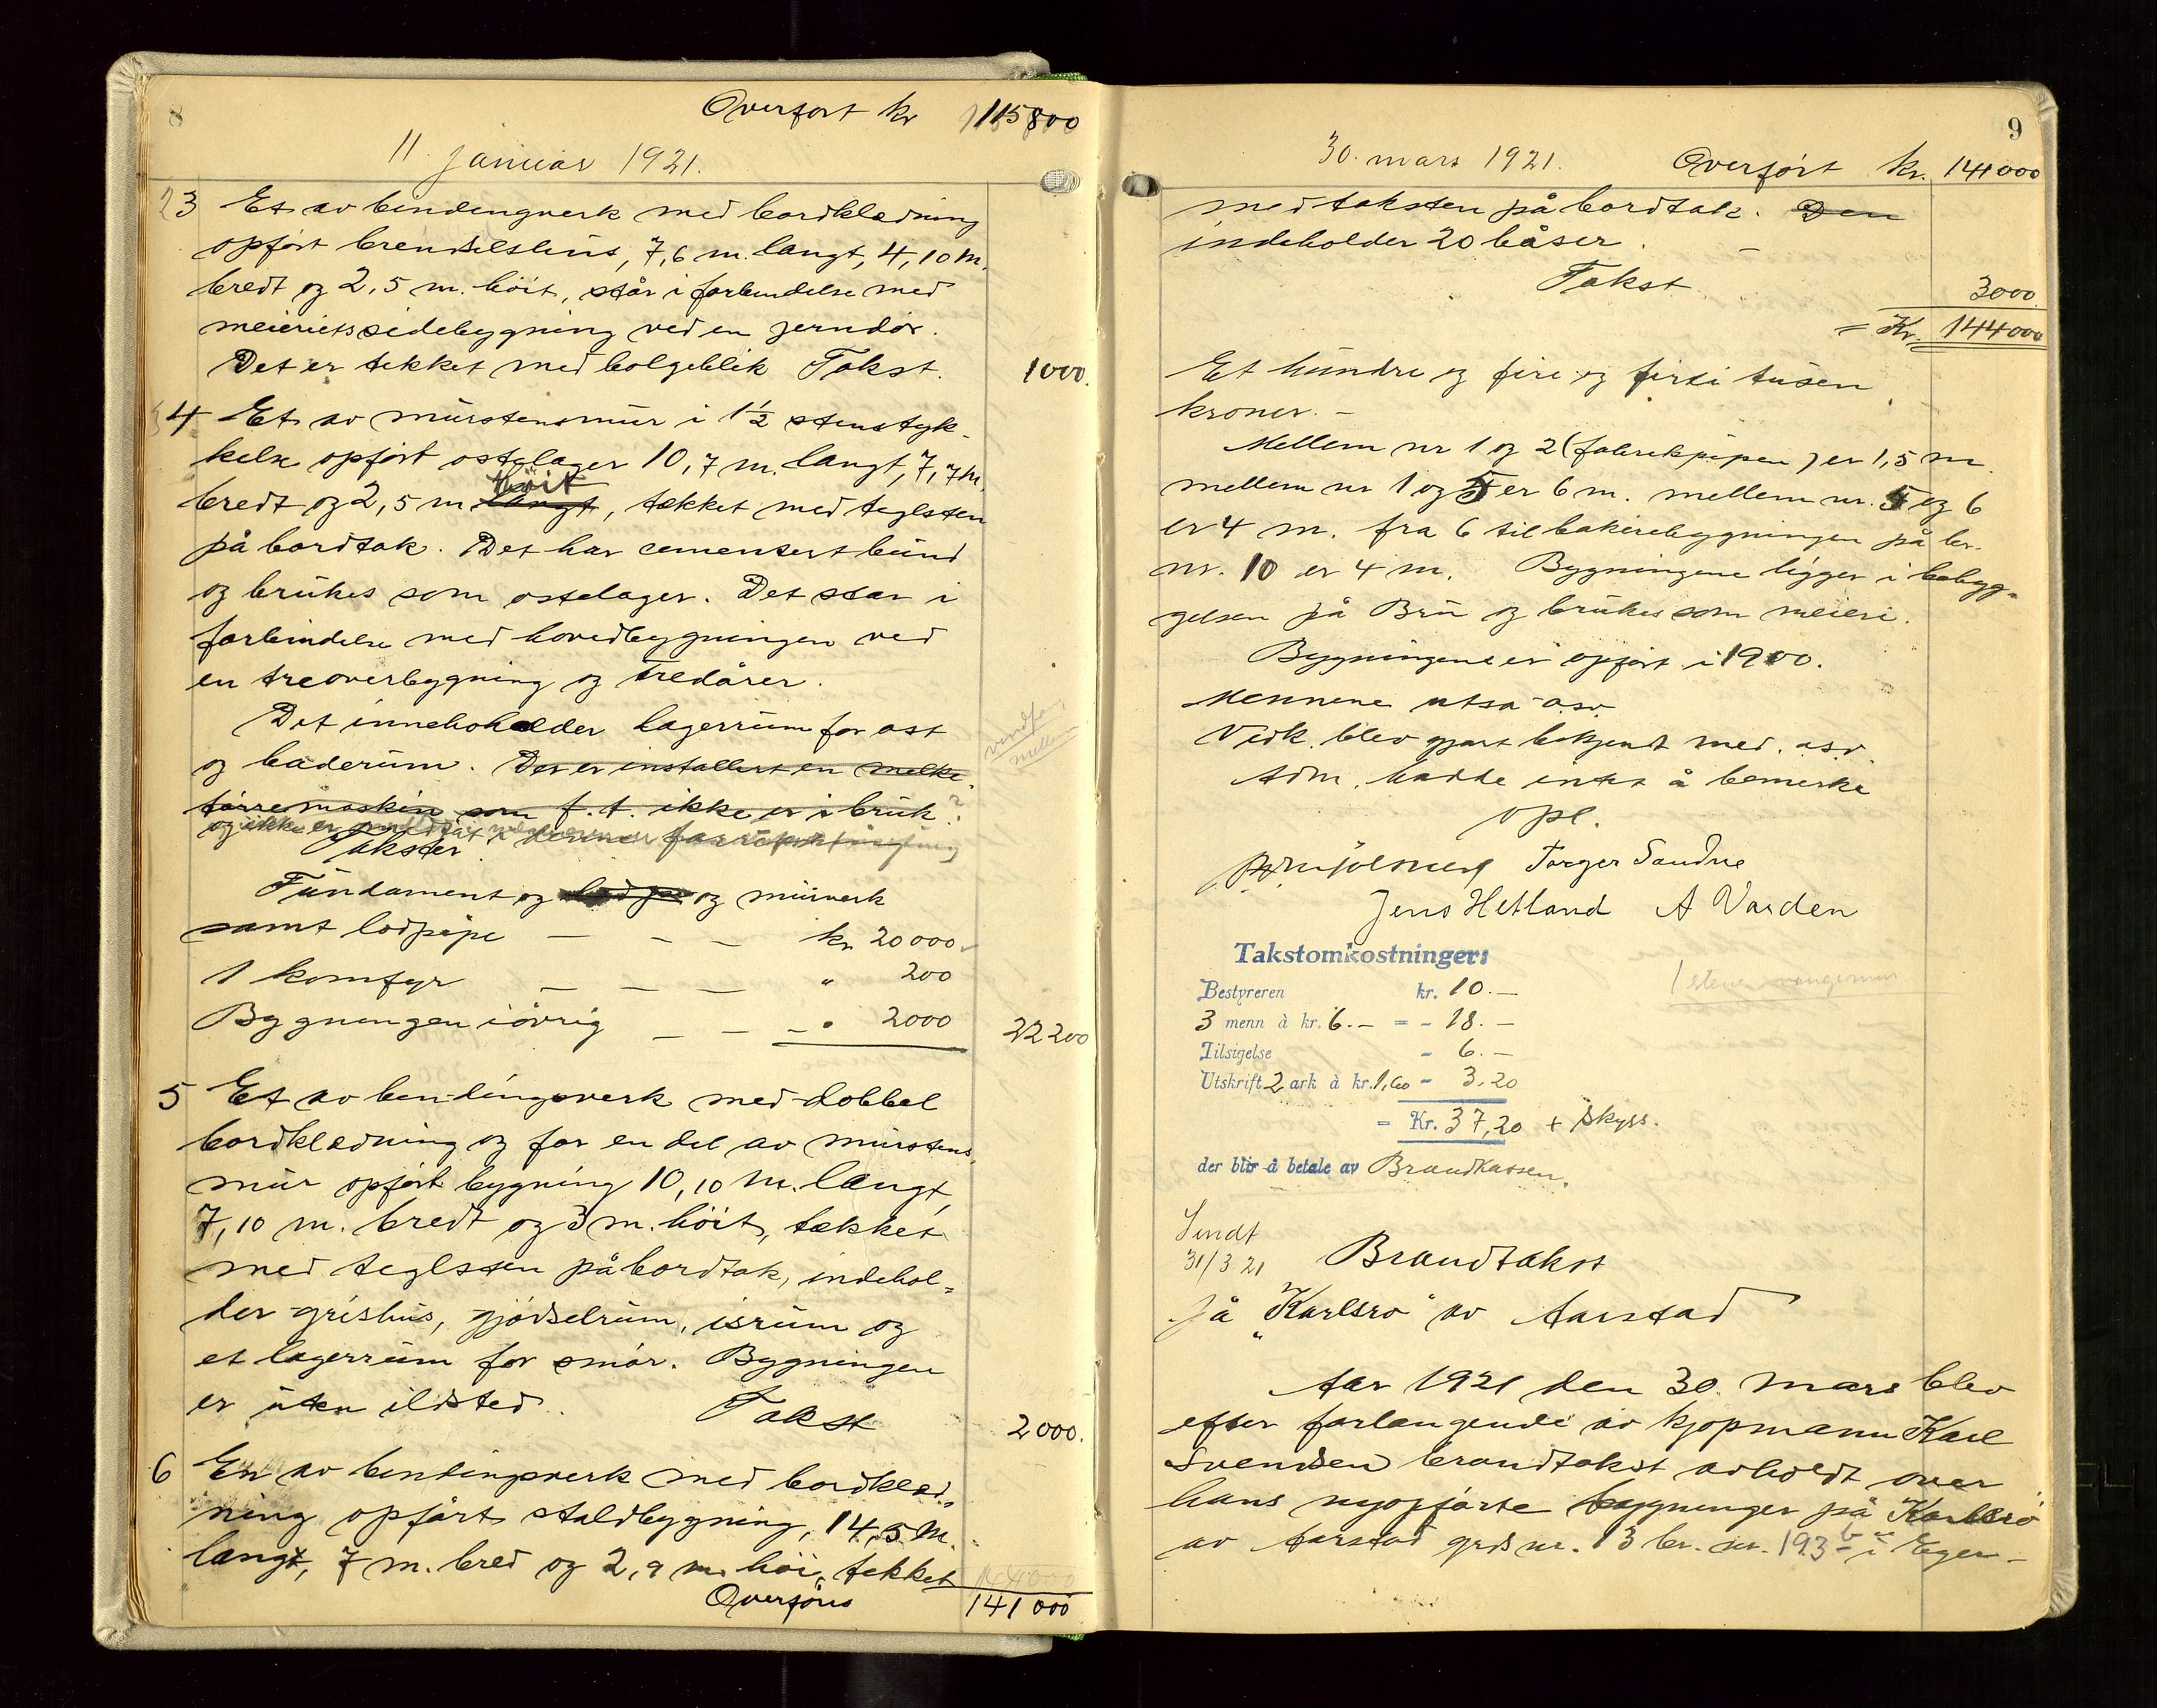 8
Overført kr 115800
11. januar 1921.
3 Et av bendingverk med bordklædning
opført brenselshus, 7,6 m. langt, 4,10 m.
bredt og 2,5 m. höit, står i forbindelse med
meieriets sidebygning ved en jerndör.
Det er tekket med bolgeblik Takst. 1000.
4 Et av murstensmur i 1½ stenstyk-
kelse opført ostelager 10,7 m. langt, 7,7 m.
bredt og 2,5 m langt höit, tekket med teglsten
på bordtak. Det har cementert bund
og brukes som ostelager. Det star i
forbindelse med hovedbygningen ved
en treoverbygning og tredörer.
Det inneholder lagerrum for ost
og baderum. Der er installert en melke
törremaskin som f.t. ikke er i bruk.
og ikke er
Takster
Fundament og og murverk
samt lodpipe — — — kr 20000
1 komfyr — — — " 200
Bygningen iövrig — — — " 2000 22200
5 Et av bendingsverk med dobbel
bordklædning og for en del av murstens
mur opfört bygning 10,10 m. langt,
7,10 m. bredt og 3 m. höit, tekket
med teglsten på bordtak, indehol-
der grishus, gjödselrum, isrum og
et lagerrum for smör. Bygningen
er uten ildsted. Takst 2000.
6 En av bendingsverk med bordklæd-
ning opfört staldbygning, 14,5 m.
langt, 7 m. bred og 2,9 m. höi, tekket
Overføres 141000
9
30. mars 1921. Overfört kr. 141000
med taksten på bordtak. Den
indeholder 20 båser.
Takst 3000
= Kr. 144000
Et hundre og fire og firti tusen
kroner. —
Mellem nr 1 og 2 (fabrikpipen) er 1,5 m.
mellem nr 1 og 5 er 6 m. mellem nr. 5 og 6
er 4 m. fra 6 til bakeribygningen på br.
nr. 10 er 4 m. Bygningene ligger i bebyg-
gelsen på Bru og brukes som meieri.
Bygningene er opfört i 1900.
Mennene utsa o.s.v.
Vedk. blev gjort bekjendt med. o.s.v.
Adm. hadde intet å bemerke
opl.
Torger Sandve
Jens Hetland A Varden
Takstomkostninger:
Bestyreren kr. 10.—
3 menn à kr. 6.— = - 18.—
Tilsigelse - 6.—
Utskrift 2 ark à kr. 1,60 - 3,20
= Kr. 37,20 + skyss.
der blir å betale av Brandkassen.
Sendt
31/3 21 Brandtakst
på "Karlsro" av Aarstad
Aar 1921 den 30. mars blev
efter forlangende av kjøpmann Karl
Svendsen brandtakst avholdt over
hans nyopförte bygninger på Karlsro
av Aarstad grds nr. 13 br. nr. 193 b i Eger-